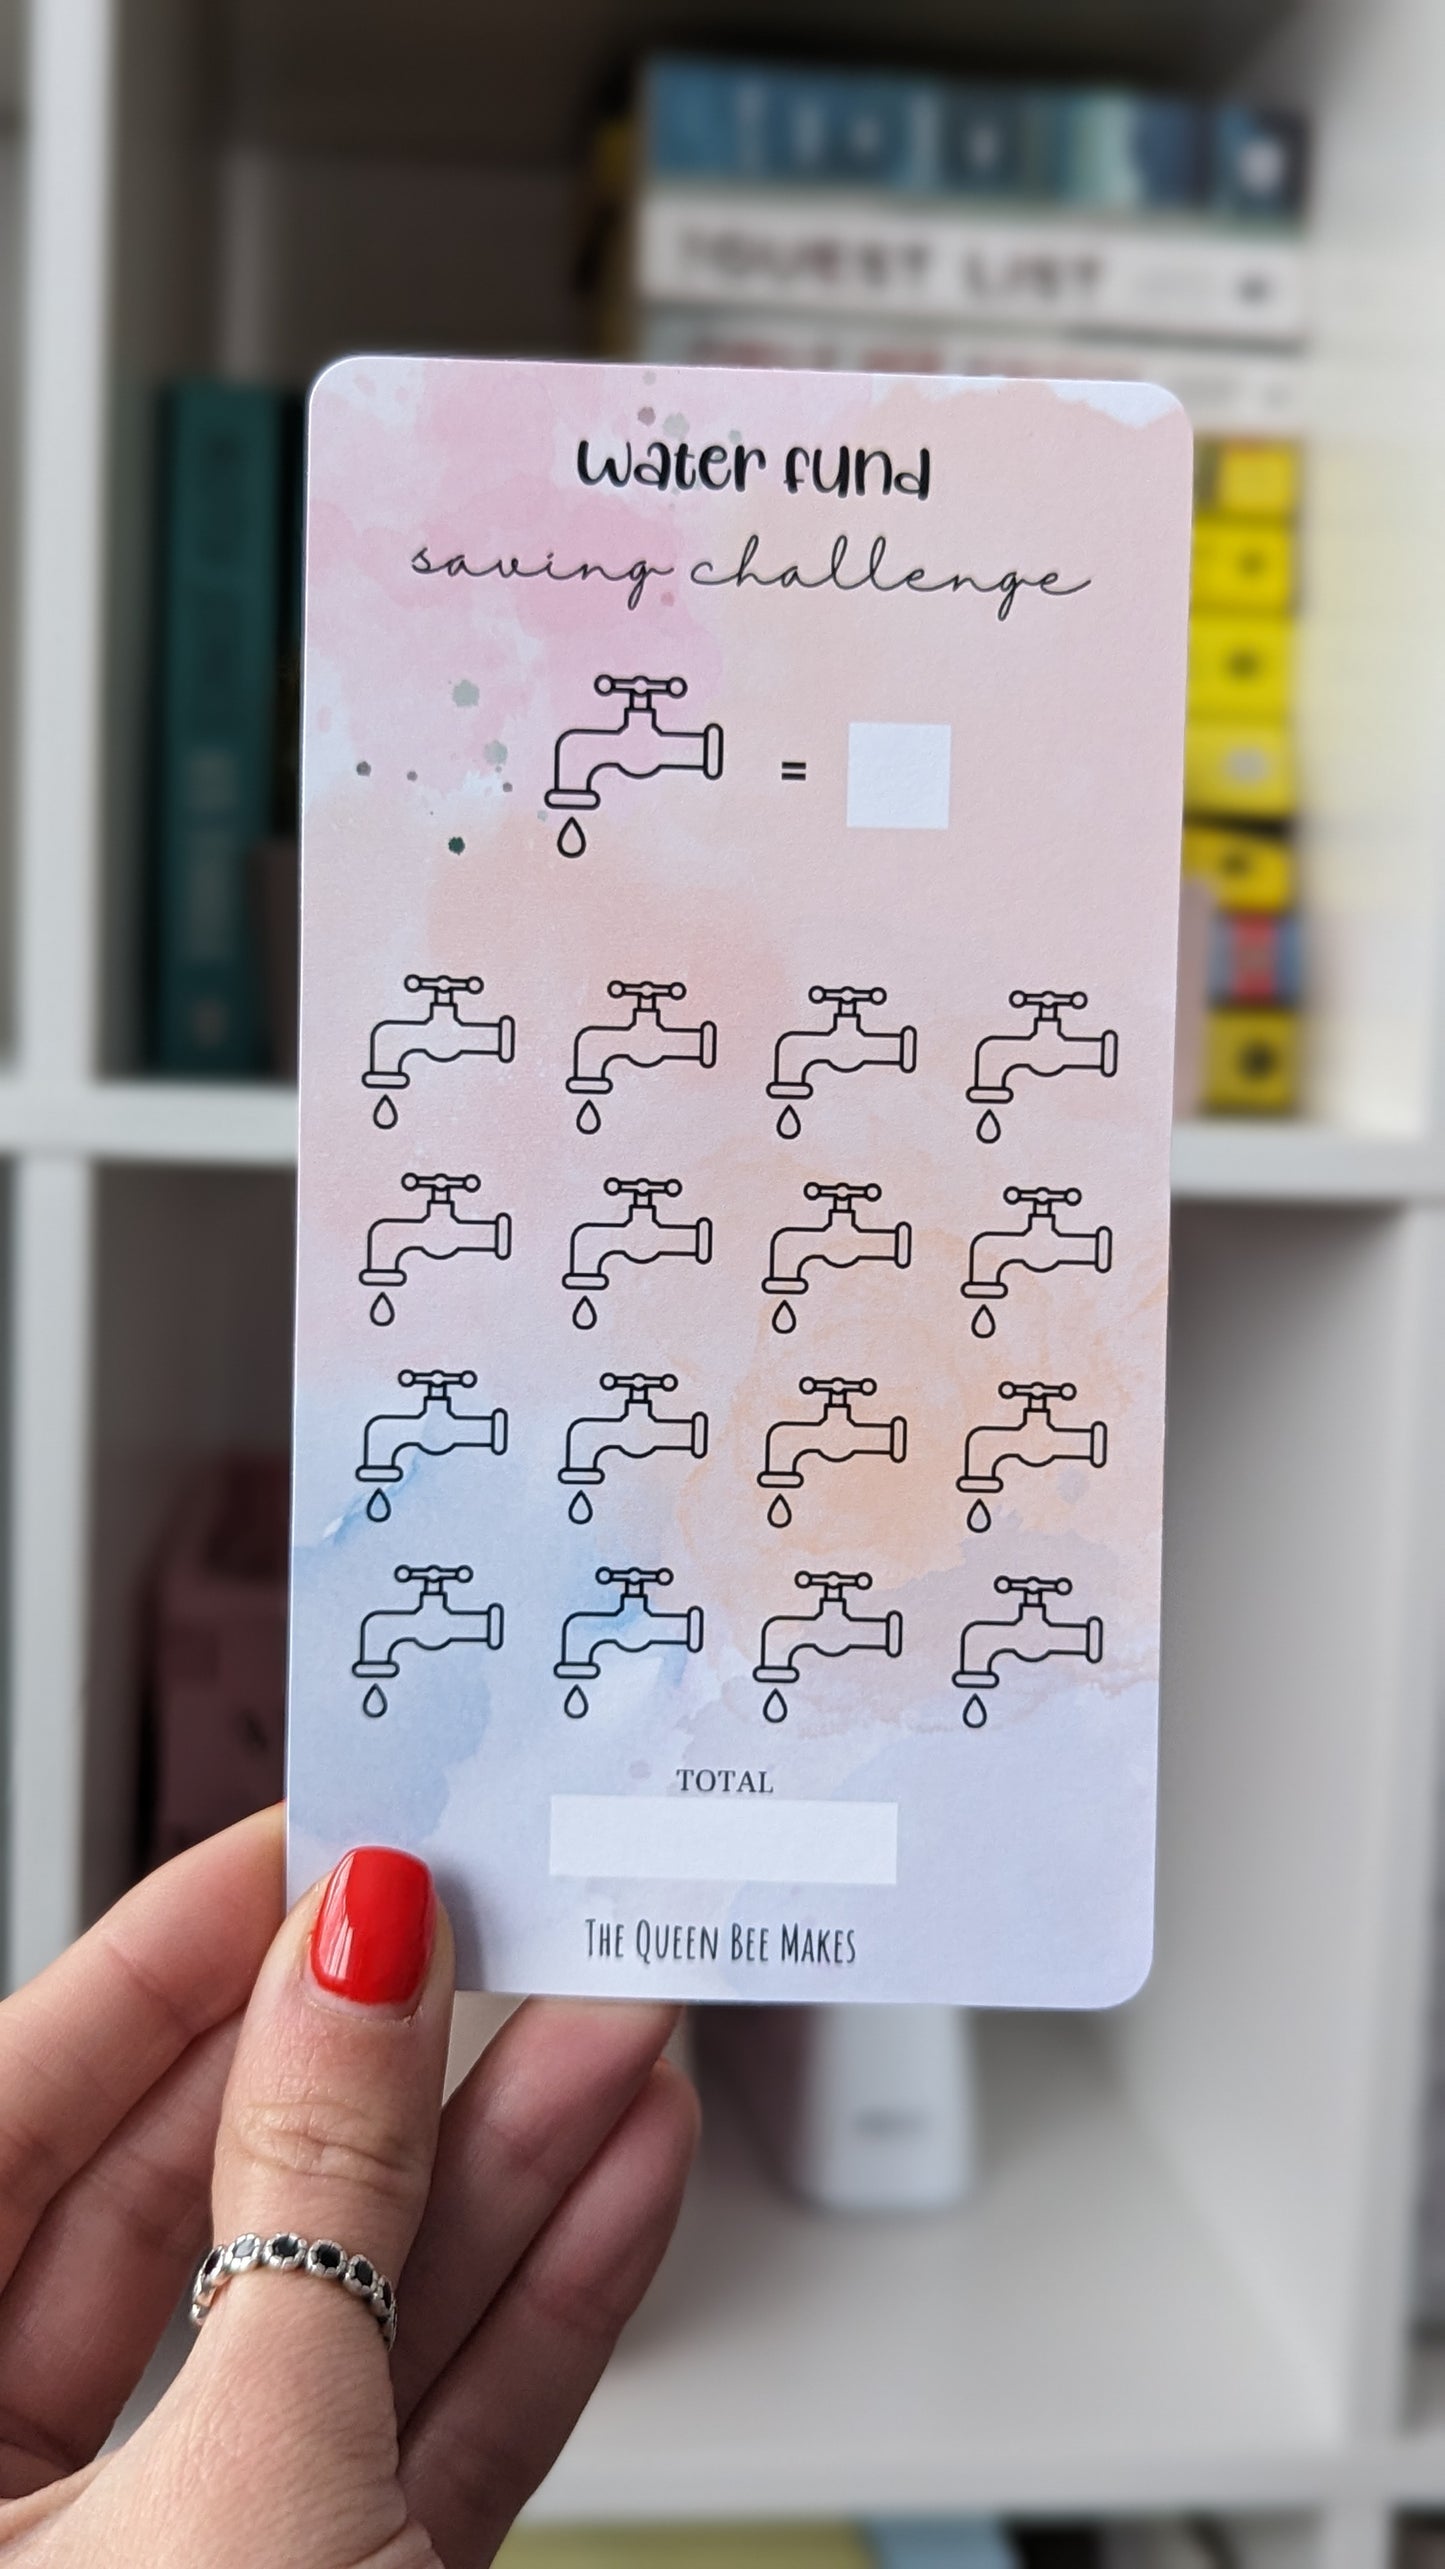 GUEST LIST
water fund
saving challenge
=
TOTAL
THE QUEEN BEE MAKES